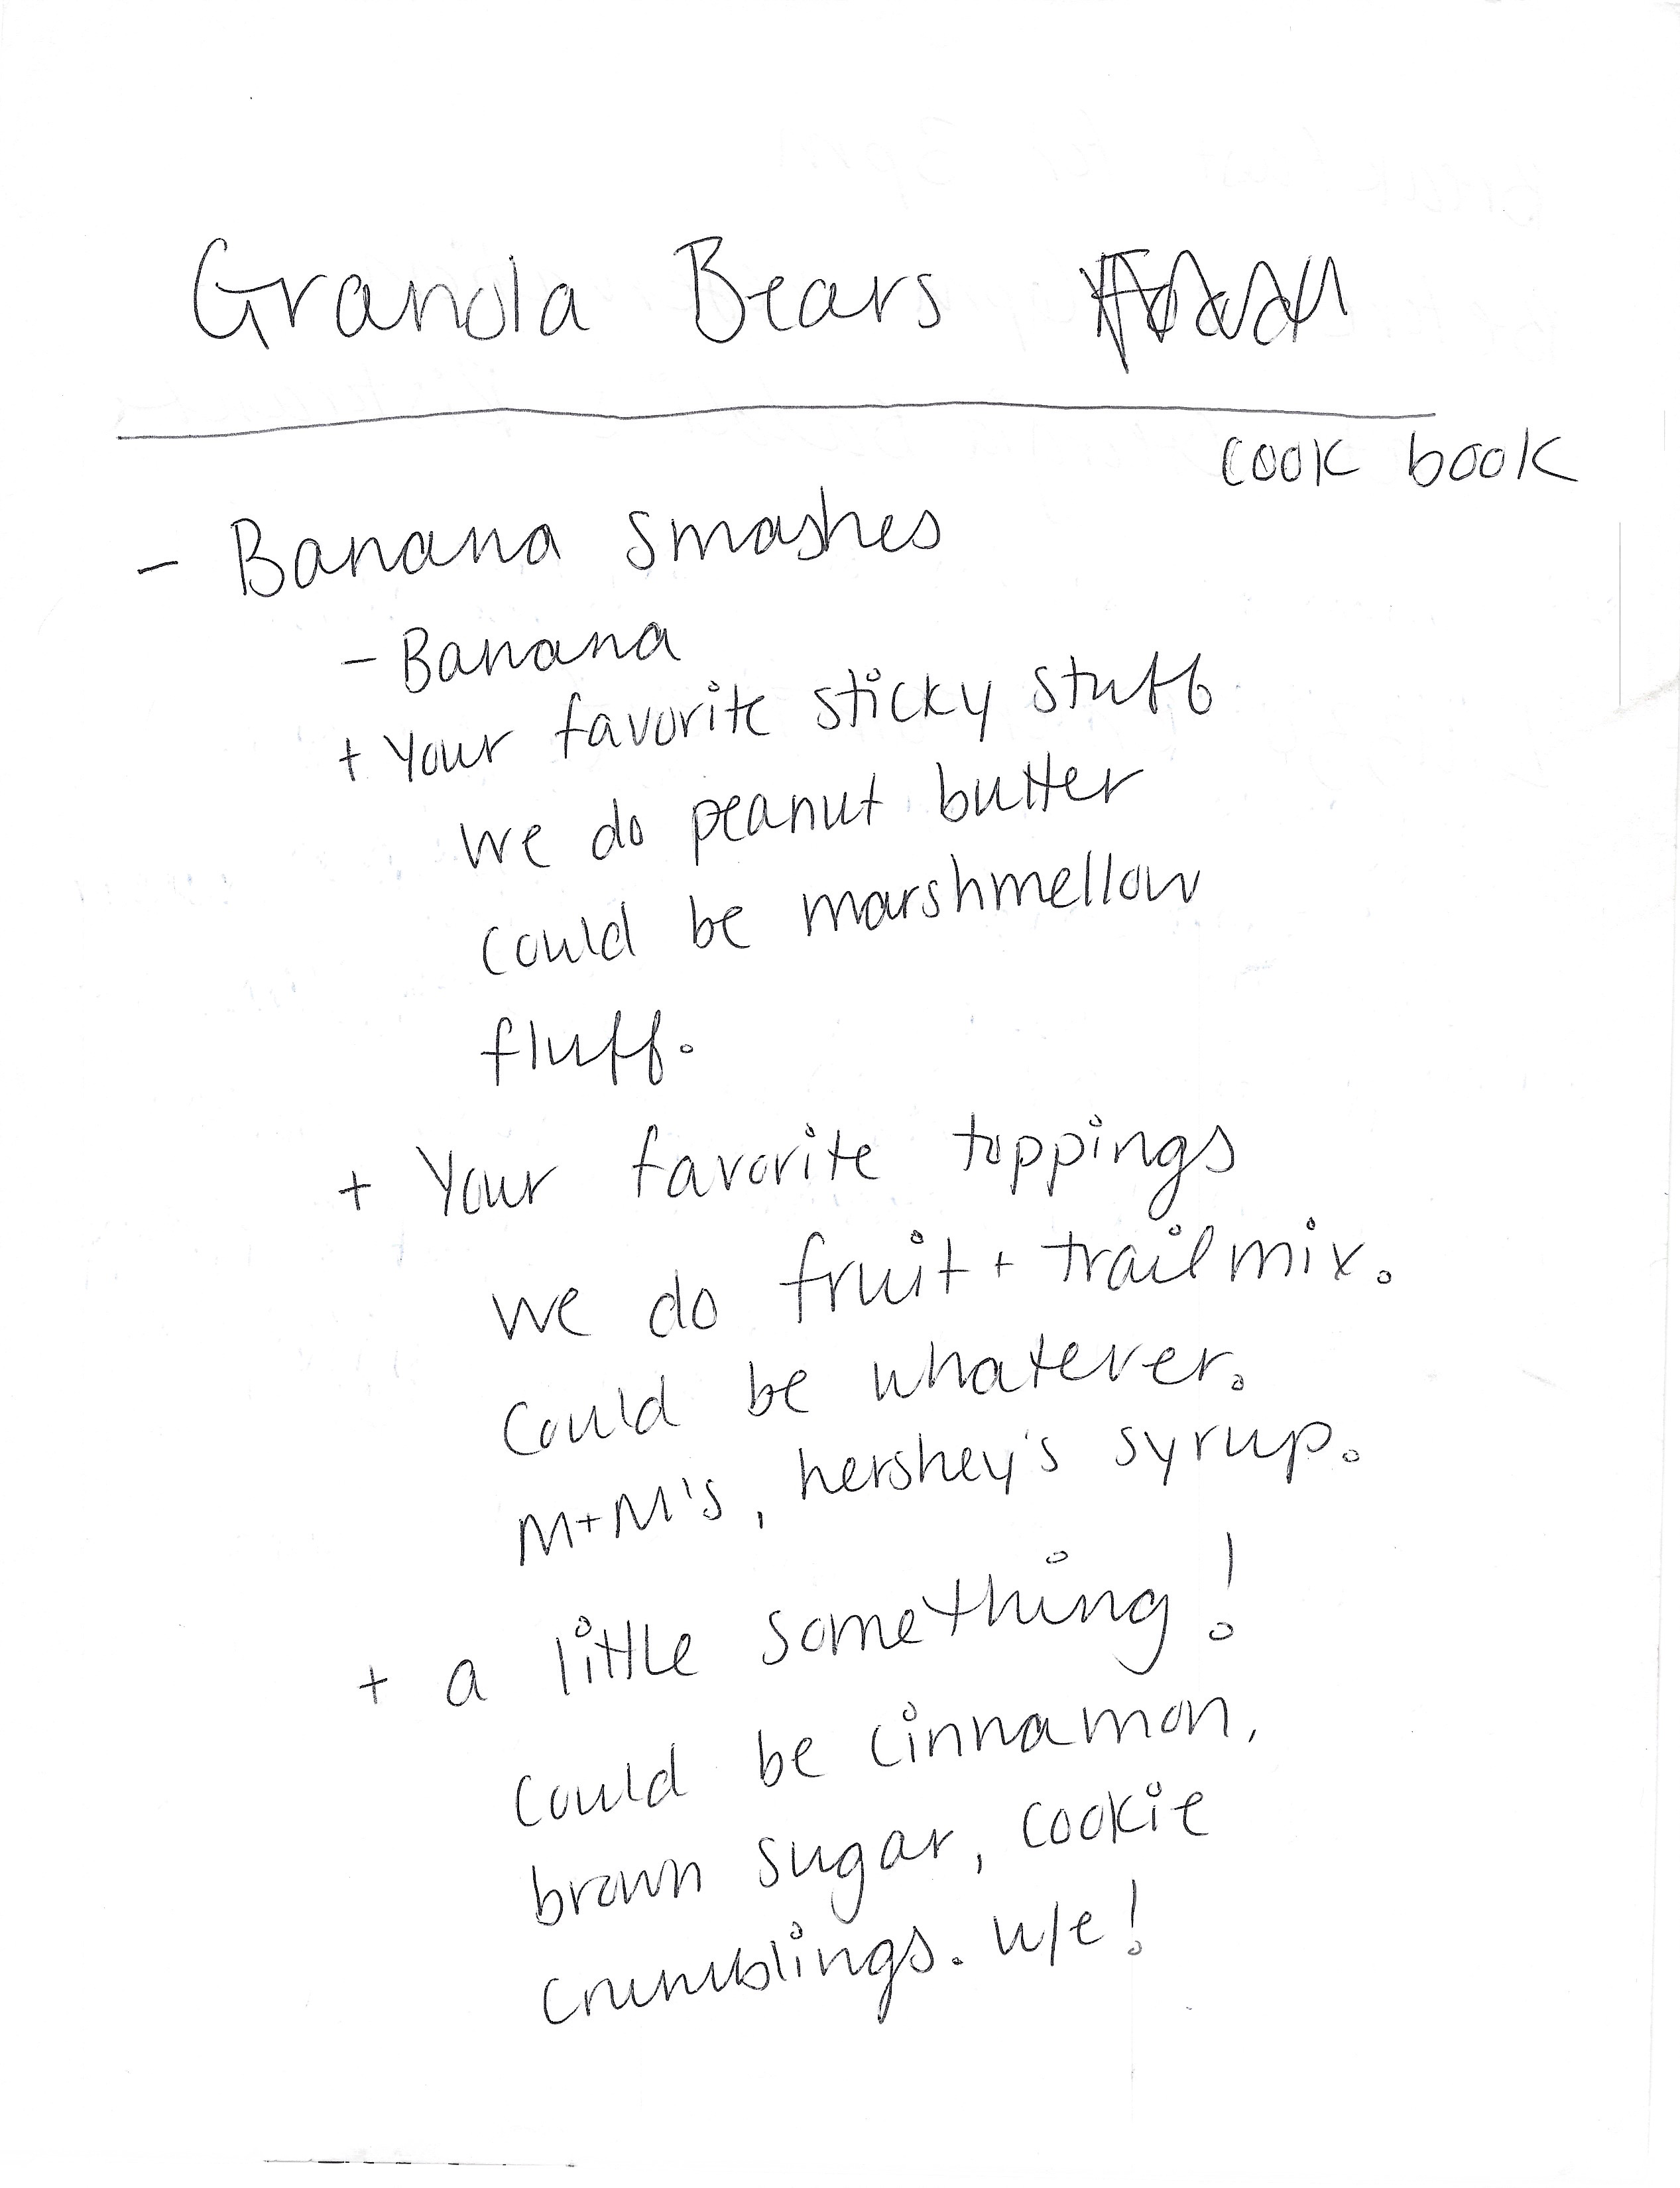 Granola Bears
cook book
- Banana smashes
- Banana
+ Your favorite sticky stuff
we do peanut butter
could be marshmellow
fluff.
+ Your favorite toppings
we do fruit + trail mix.
Could be whatever.
M+M's, hershey's syrup.
+ a little something!
Could be cinnamon,
brown sugar, cookie
crumblings. w/e!